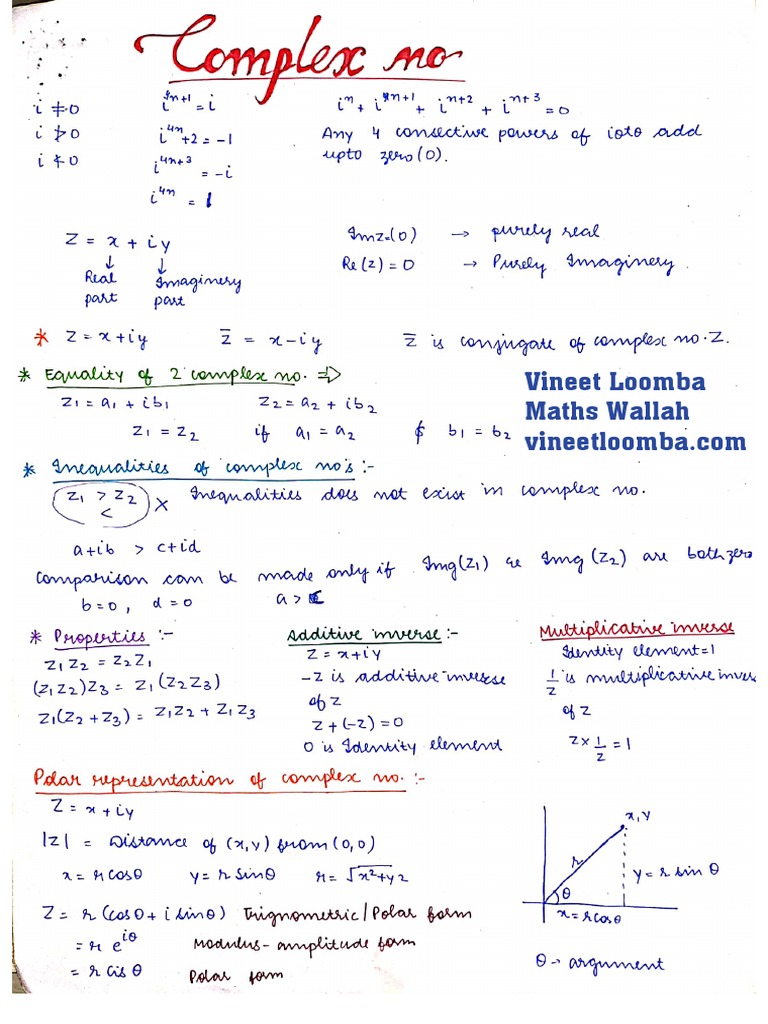 Complex no
i ≠ 0
i ≯ 0
i ≮ 0
i^4n+1 = i
i^4n+2 = -1
i^4n+3 = -i
i^4n = 1
i^n + i^n+1 + i^n+2 + i^n+3 = 0
Any 4 consective powers of ioto add
upto zero (0).
Z = x + iy
↓ ↓
Real Imaginery
part part
Imz=(0) → purely real
Re(z) = 0 → Purely Imaginery
* Z = x+iy z̄ = x-iy z̄ is conjugate of complex no. Z.
* Equality of 2 complex no. ⇒
Z1 = a1 + ib1 Z2 = a2 + ib2
Z1 = Z2 if a1 = a2 & b1 = b2
Vineet Loomba
Maths Wallah
vineetloomba.com
* Inequalities of complex no's :-
Z1 > Z2 × Inequalities does not exist in complex no.
<
a+ib > c+id
Comparison can be made only if Img(Z1) Img(Z2) are both zero
b=0, d=0 a > c
* Properties :-
Z1Z2 = Z2Z1
(Z1Z2)Z3 = Z1(Z2Z3)
Z1(Z2+Z3) = Z1Z2 + Z1Z3
Additive inverse :-
Z = x+iy
-Z is additive inverse
of Z
Z+(-Z) = 0
0 is Identity element
Multiplicative inverse
Identity element=1
1/Z is multiplicative inver
of Z
Z × 1/Z = 1
Polar representation of complex no. :-
Z = x+iy
|Z| = Distance of (x,y) from (0,0)
x = r cosθ y = r sinθ r = √x²+y2
Z = r (cosθ + i sinθ) Trignometric/Polar form
= r e^iθ Modulus-amplitude form
= r Cis θ Polar form
x,y
r
θ
y = r sin θ
x = r cosθ
θ → argument